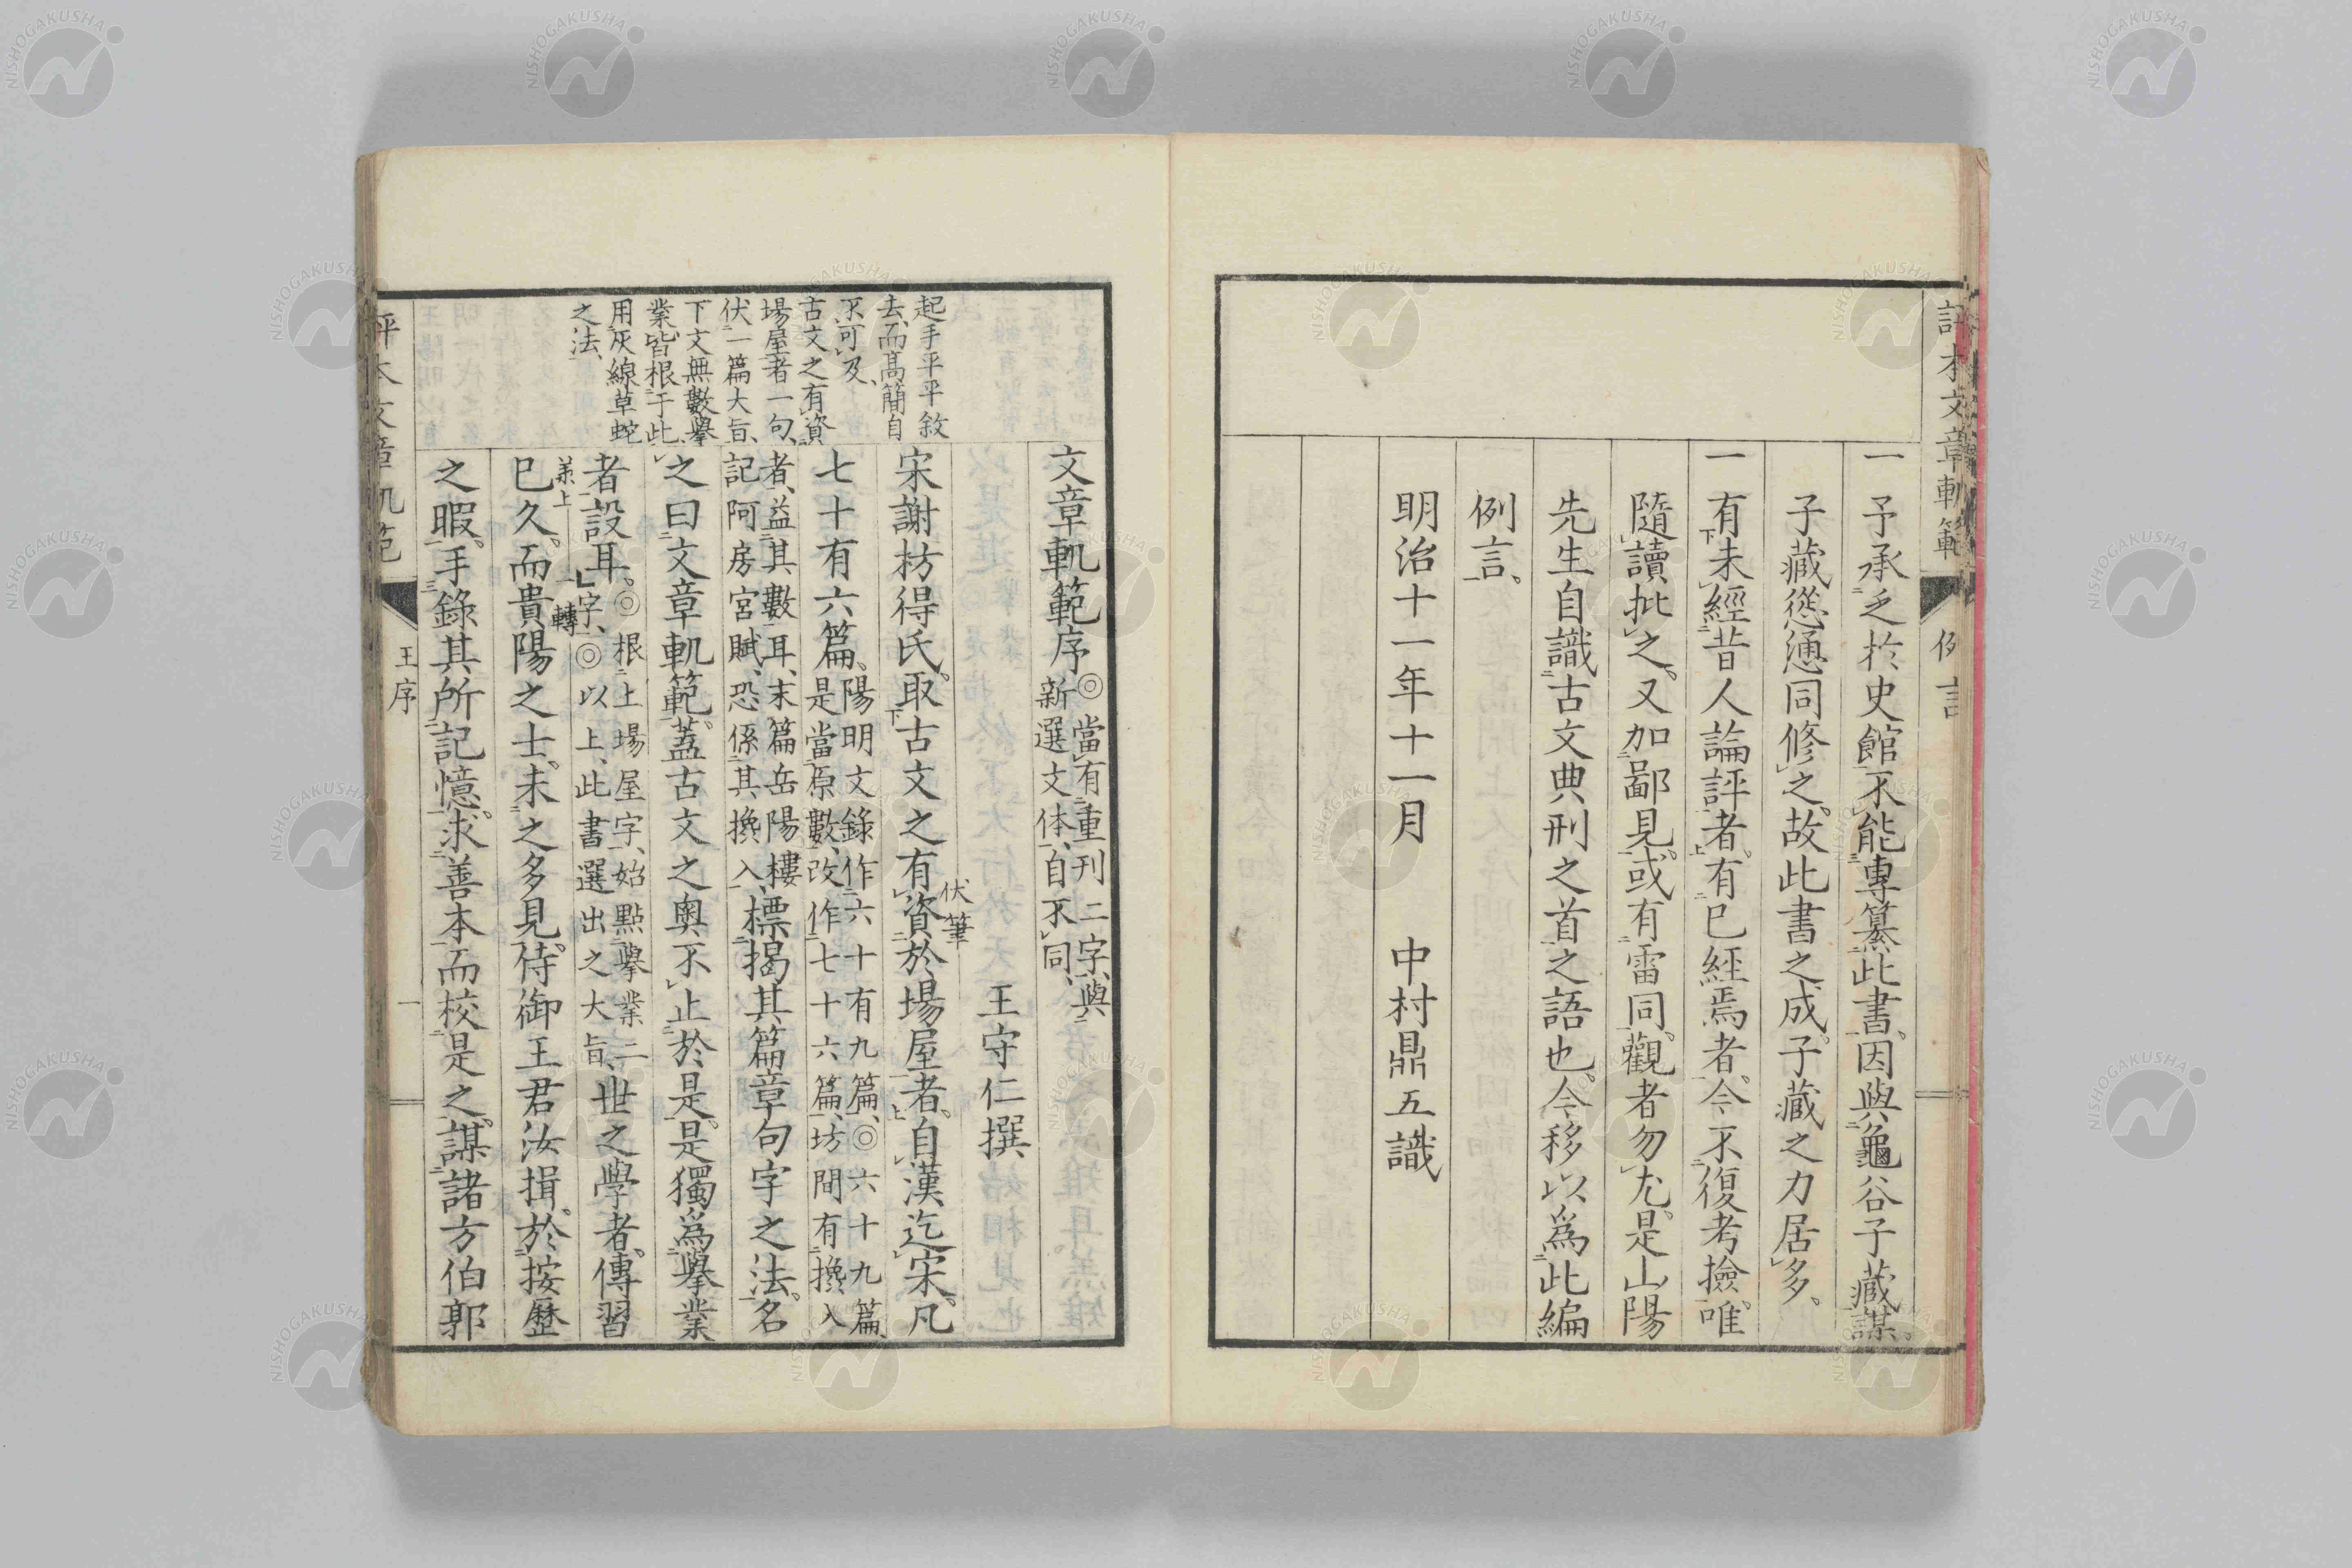 評本文章軌範
例言
一予承乏於史館不能專纂此書。因與龜谷子藏謀。
子藏慫慂同修之。故此書之成。子藏之力居多。
一有未經昔人論評者。有已經焉者。今不復考撿。唯
隨讀批之。又加鄙見。或有雷同。觀者勿尤。是山陽
先生自識古文典刑之首之語也。今移以爲此編
例言。
明治十一年十一月　　中村鼎五識
起手平平敘
去、而高簡自
不可及、
古文之有資
場屋者一句、
伏一篇大旨、
下文無數擧
業、皆根于此、
用灰線草蛇
之法、
文章軌範序◎當有重刊二字、與
新選文体、自不同、
王守仁撰
宋謝枋得氏。取古文之有資於場屋者。自漢迄宋。凡
伏筆
七十有六篇。陽明文錄作六十有九篇、◎六十九篇、
是當原數、改作七十六篇、坊間有攙入
者、益其數耳、末篇岳陽樓
記阿房宮賦、恐係其攙入、標揭其篇章句字之法。名
之曰文章軌範。蓋古文之奧不止於是。是獨爲擧業
者設耳。◎根上場屋字、始點擧業二
字、◎以上、此書選出之大旨、世之學者。傳習
承上
轉
已久。而貴陽之士。未之多見。侍御王君汝揖。於按歷
之暇。手錄其所記憶。求善本而校是之。謀諸方伯郭
評本文章軌範
王序
一
NISHOGAKUSHA